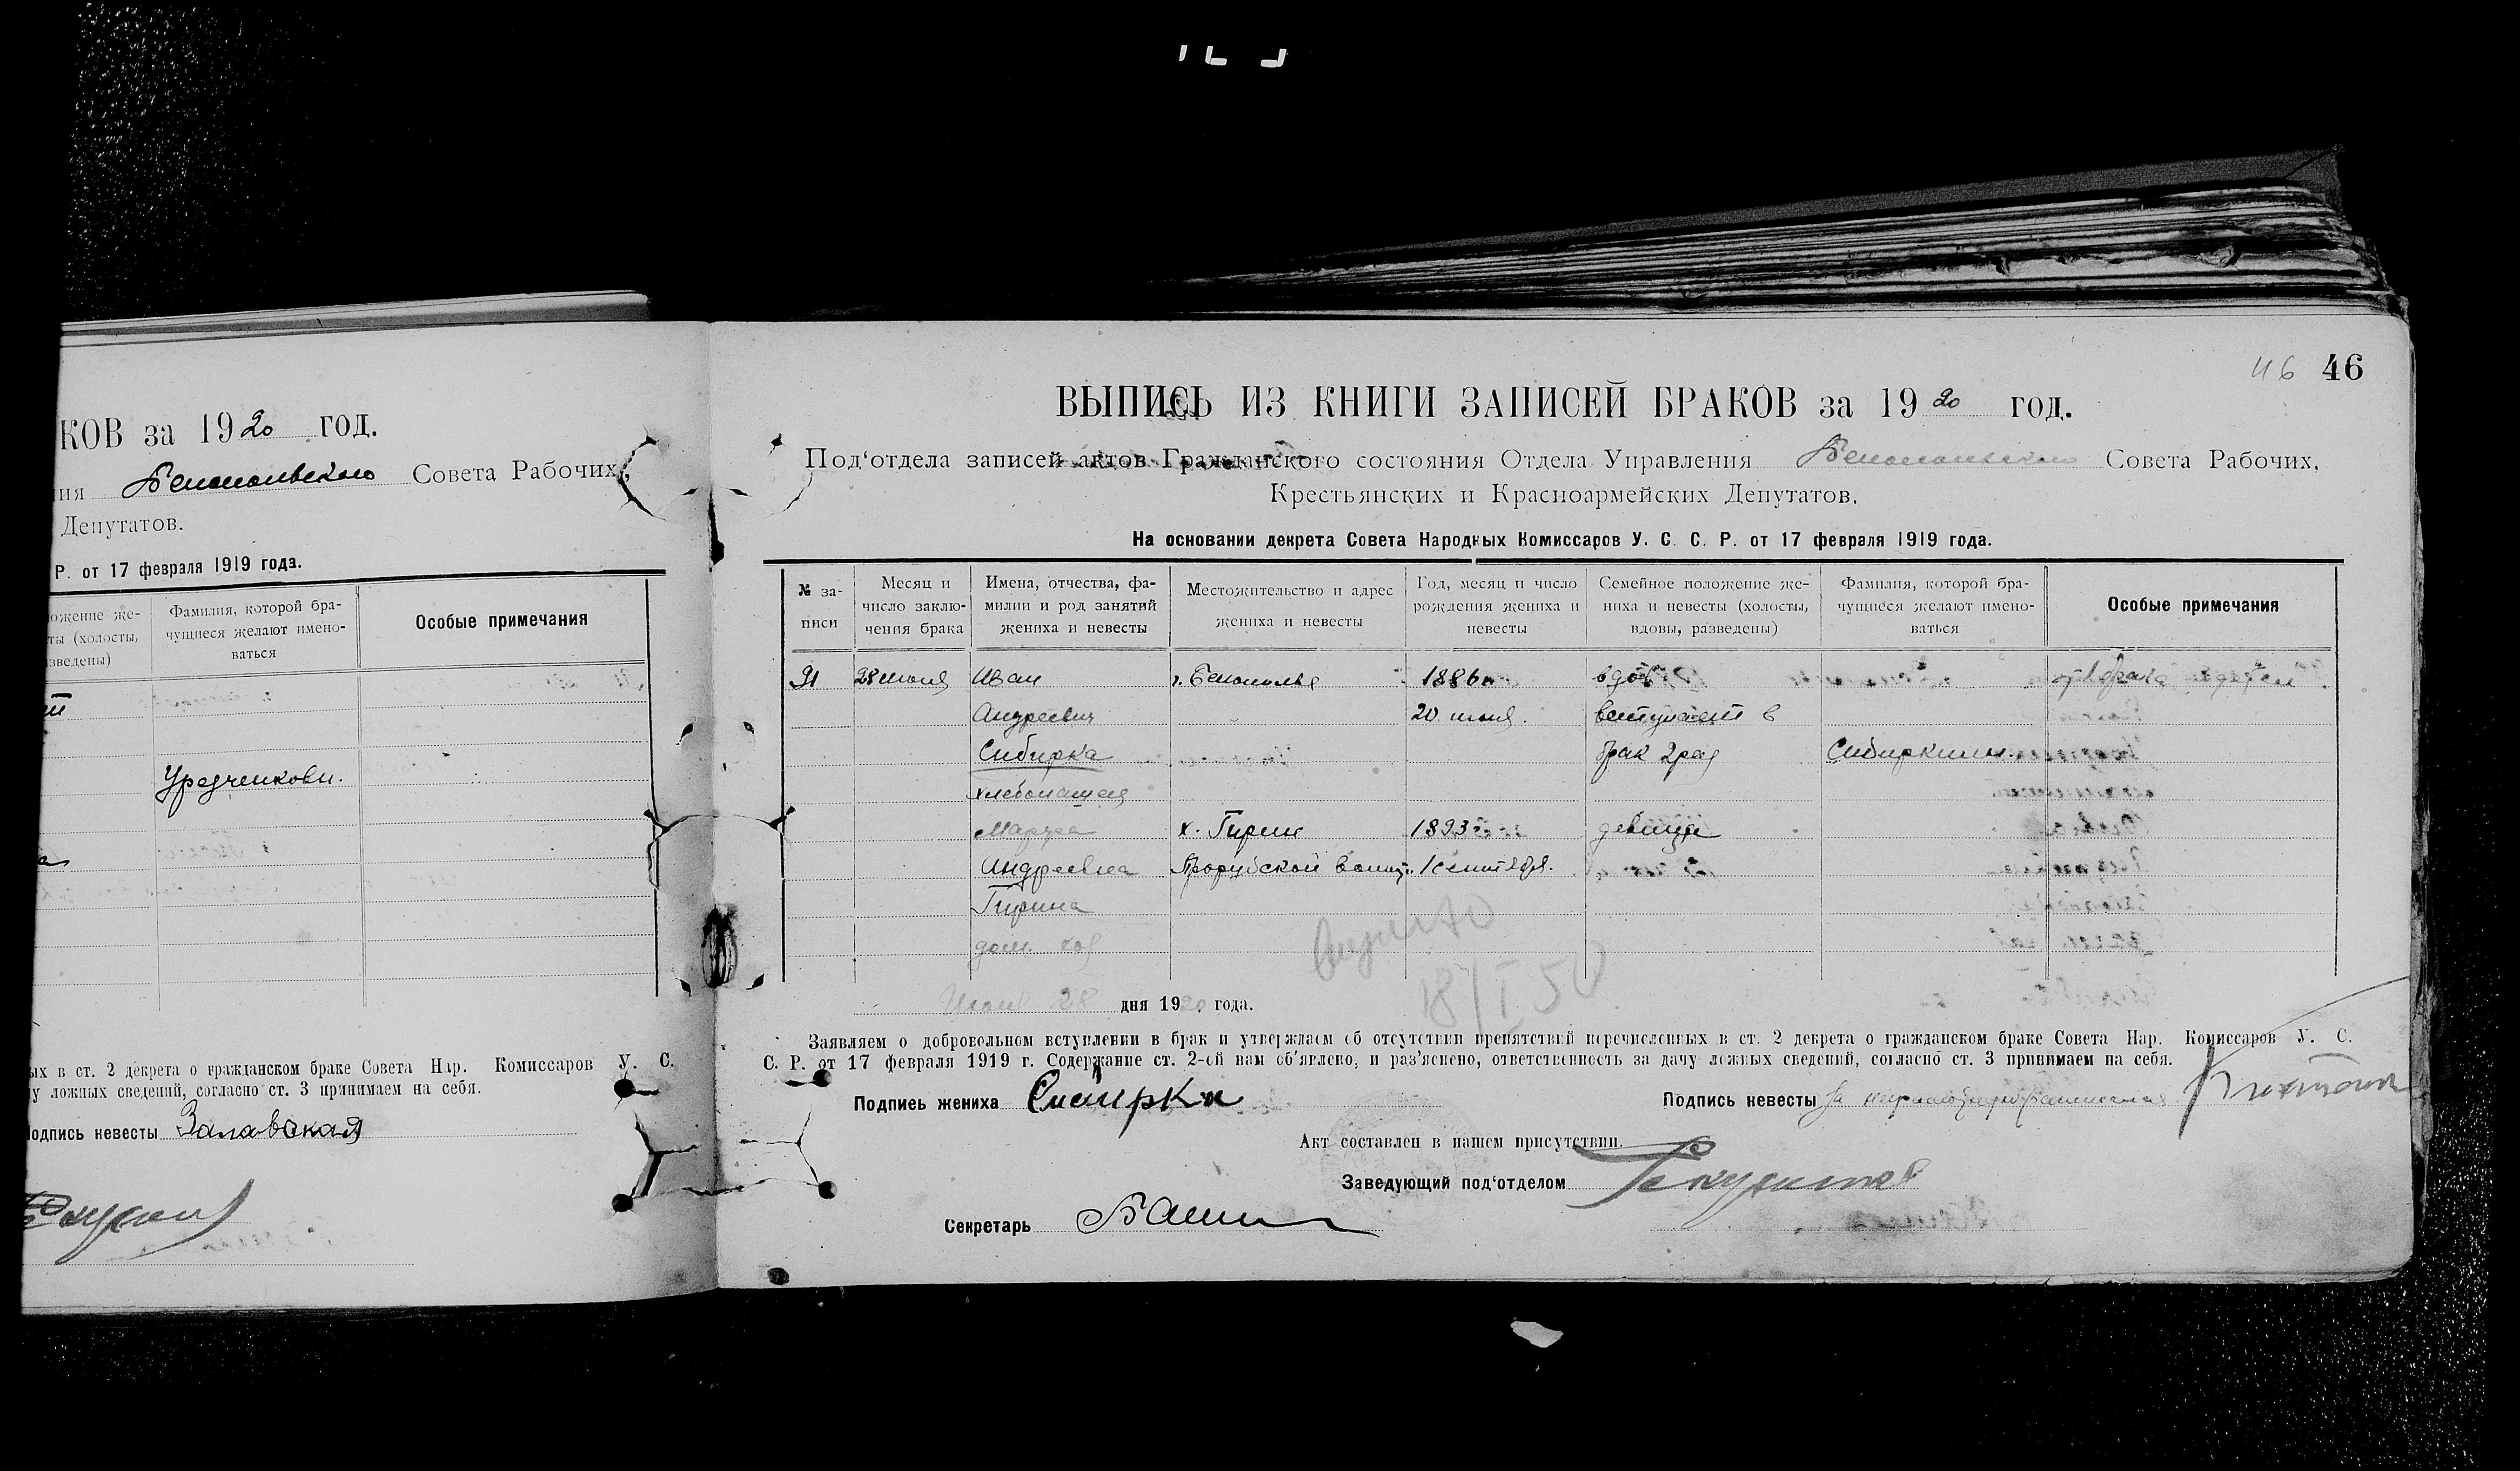 КОВ за 1920 год.
Белопольского Совета Рабочих,
Депутатов.
Р. от 17 февраля 1919 года.
Фамилия, которой бра-
чущиеся желают имено-
ваться
Особые примечания
ых в ст. 2 декрета о гражданском браке Совета Нар. Комиссаров У. С.
у ложных сведений, согласно ст. 3 принимаем на себя.
Подпись невесты
46 46
ВЫПИСЬ ИЗ КНИГИ ЗАПИСЕЙ БРАКОВ за 1920 год.
Под‘отдела записей актов Гражданского состояния Отдела Управления Белопольского Совета Рабочих,
Крестьянских и Красноармейских Депутатов.
На основании декрета Совета Народных Комиссаров У. С. С. Р. от 17 февраля 1919 года.
№ за-
писи
Месяц и
число заклю-
чения брака
Имена, отчества, фа-
милии и род занятий
жениха и невесты
Местожительство и адрес
жениха и невесты
Год, месяц и число
рождения жениха и
невесты
Семейное положение же-
ниха и невесты (холосты,
вдовы, разведены)
Фамилия, которой бра-
чущиеся желают имено-
ваться
Особые примечания
91 28 июня Иван г. Белополье 1886 г. вдов
Андреевич 20 июня. вступает в
Сибирка брак 2 раз Сибиркины.
хлебопашец
х. Гирин 1893 г. девица
Андреевна волост. 1 сентября.
Гирина
дом. хоз
18/I 50
Июня 28 дня 1920 года.
Заявляем о добровольном вступлении в брак и утверждаем об отсутствии препятствий перечисленных в ст. 2 декрета о гражданском браке Совета Нар. Комиссаров У. С.
С. Р. от 17 февраля 1919 г. Содержание ст. 2-ой нам об‘явлено, и раз‘яснено, ответственность за дачу ложных сведений, согласно ст. 3 принимаем на себя.
Подпись жениха Сибирка Подпись невесты за
Акт составлен в нашем присутствии.
Заведующий под‘отделом
Секретарь